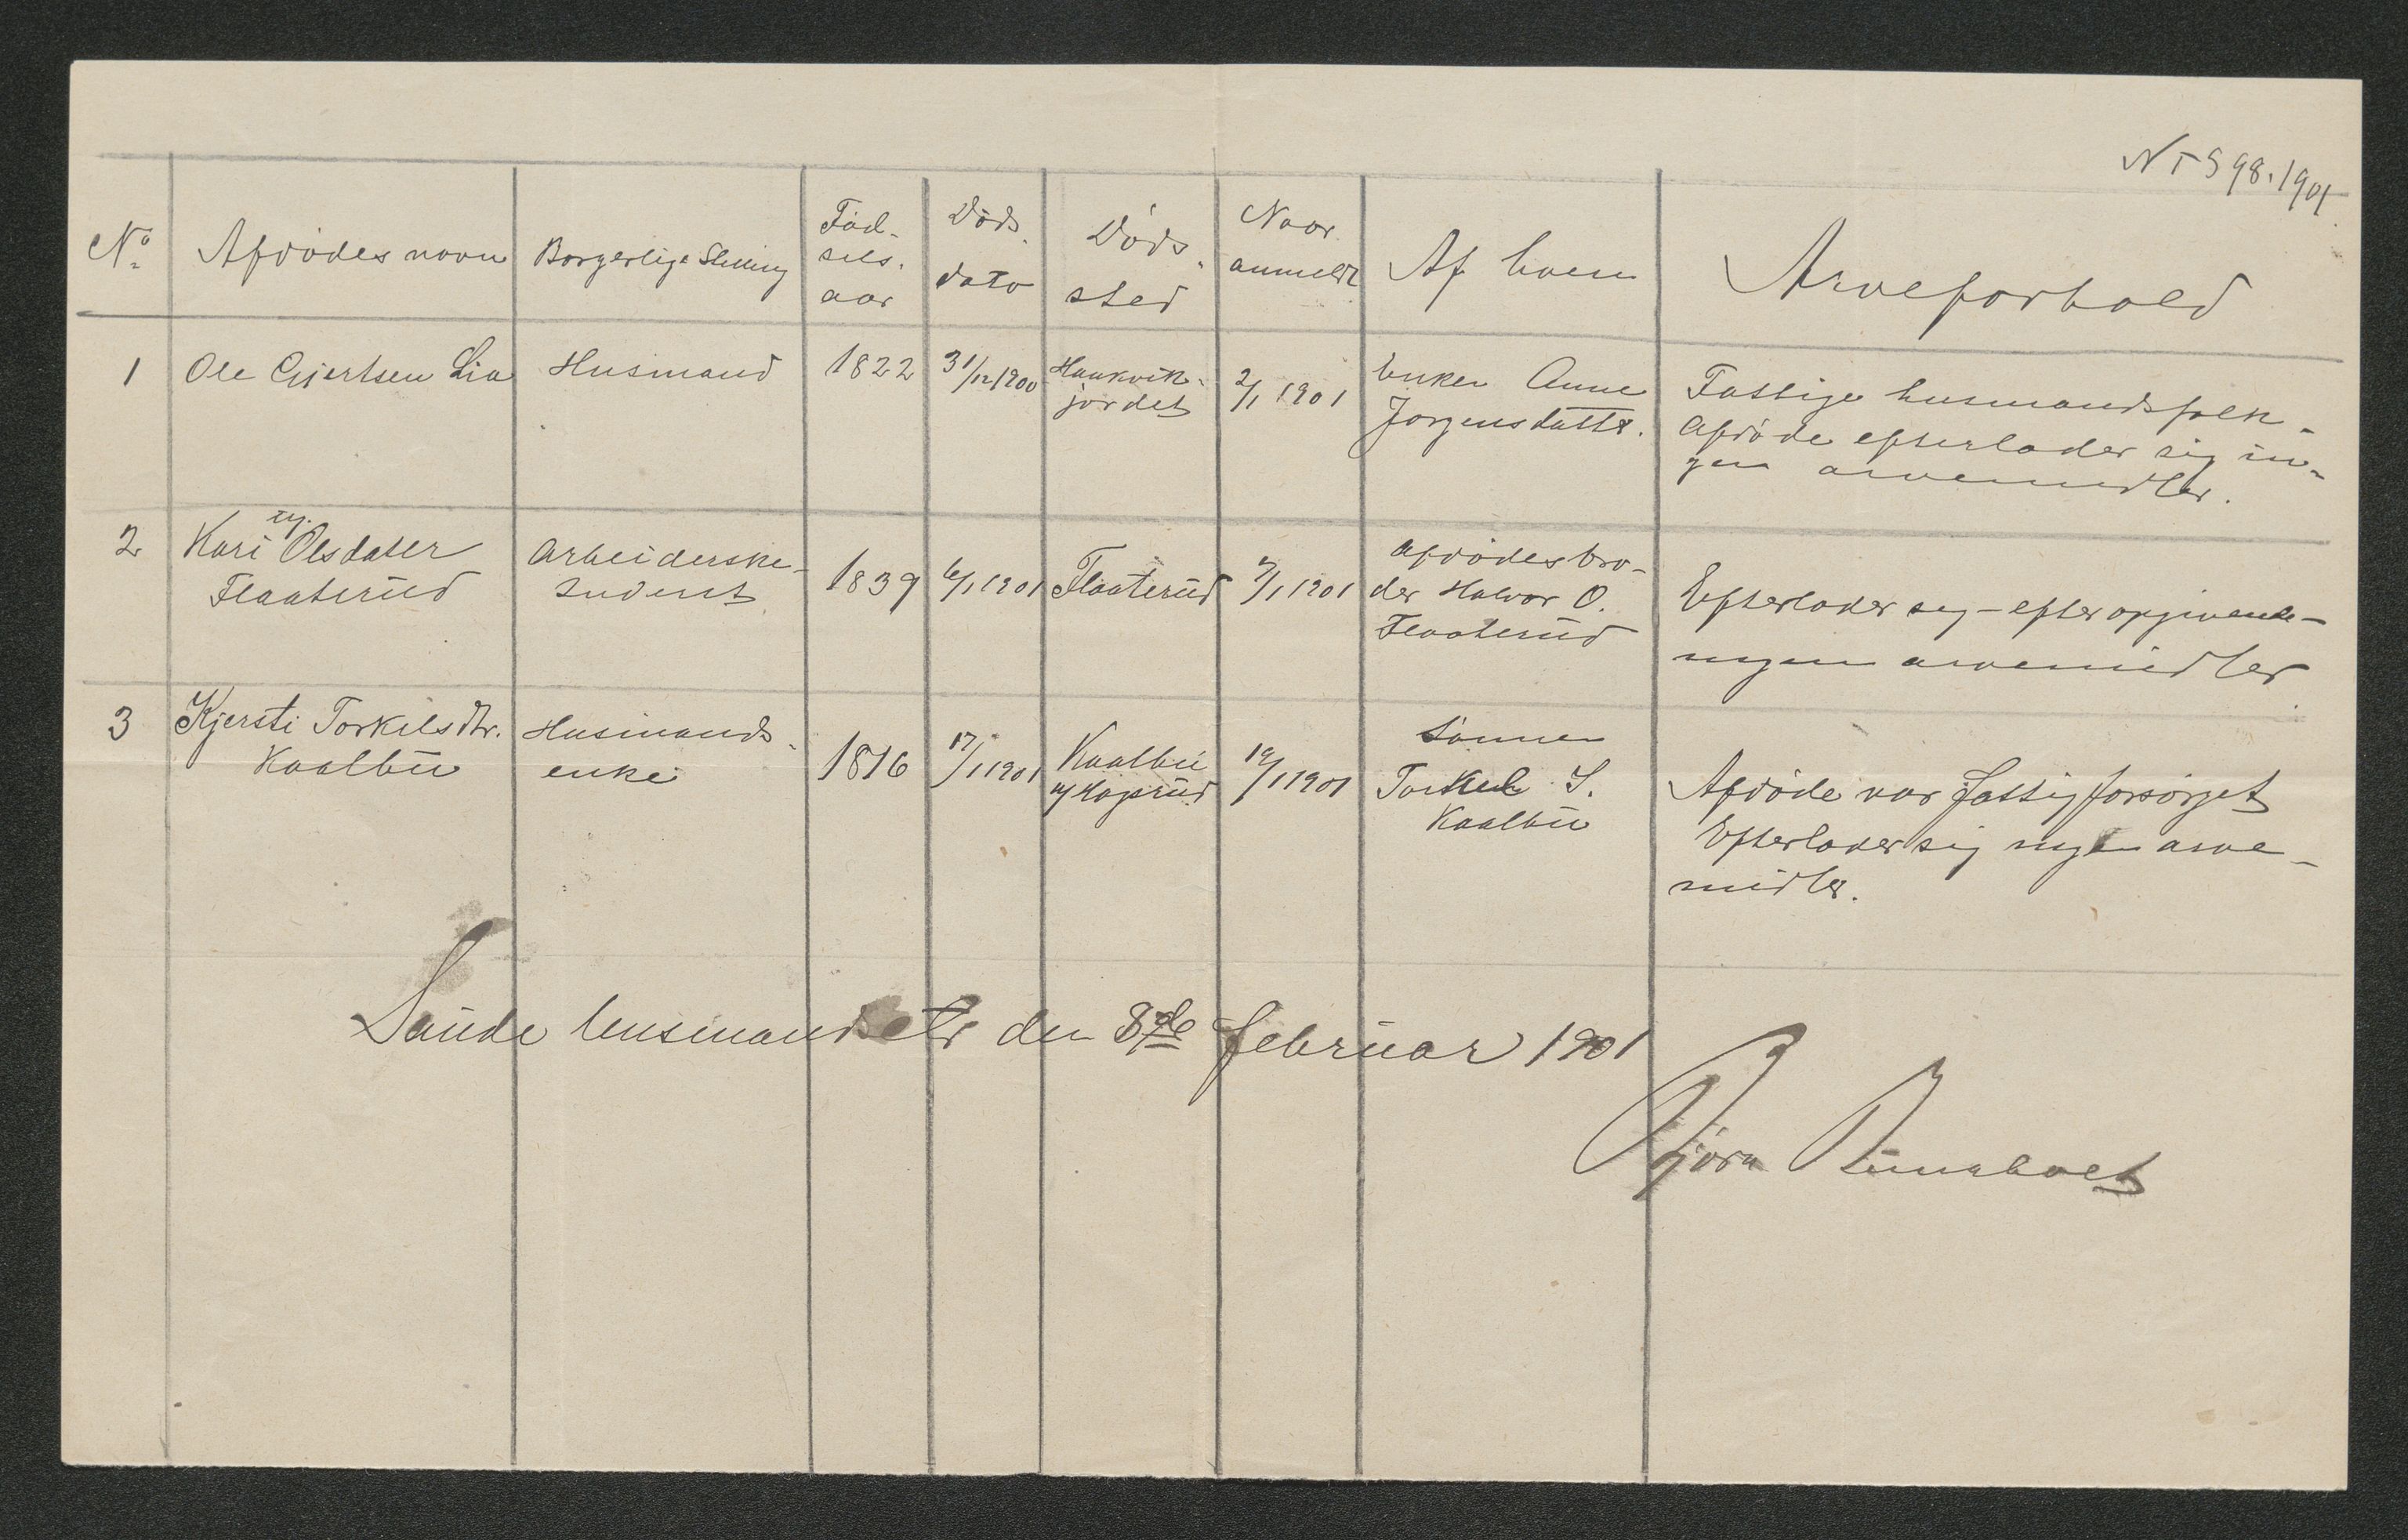 N 598.1901
No Afdödes navn Borgerlige Stilling Föd- Döds Döds Naar Af hvem Arveforhold
sels. dato sted anmeldt
aar
1 Ole Gjertsen Lia Husmand 1822 31/12 1900 Haukvik- 2/1 1901 Enken Anne Fattige husmandsfolk.
jordet Jorgensdatter. Afdöde efterlader sig in-
gen arvemidler.
2 Kari Olsdater Arbeiderske- 1839 6/1 1901 Flaaterud 7/1 1901 Afdödes bro- Efterlader sig - efter opgivende -
Flaaterud Inderst der Halvor O. ingen arvemidler
Flaaterud
3 Kjersti Torkilsdtr. Husmands- 1816 17/1 1901 Kaalbu 19/1 1901 Sönnen Afdöde var fattigforsörget
Kaalbu enke Torkel S. Efterlader sig ingen arve-
Kaalbu midler.
Saude lensmandsetr den 8de februar 1901
Björn